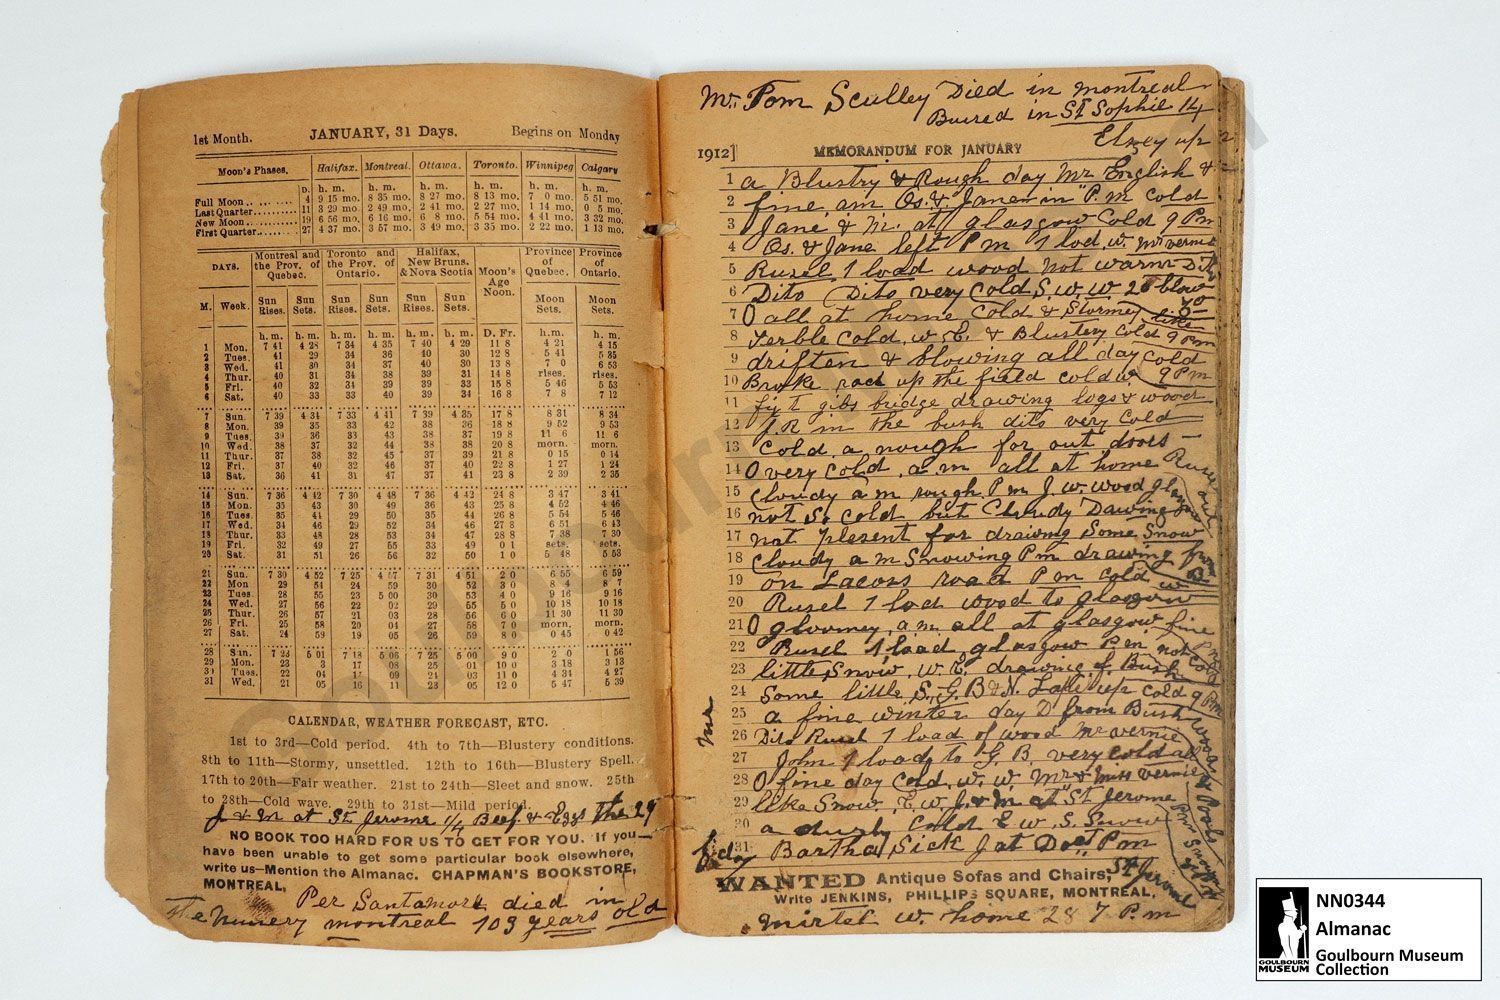 1st Month. JANUARY, 31 Days. Begins on Monday
Moon's Phases. Halifax. Montreal. Ottawa. Toronto. Winnipeg Calgary
D. h. m. h. m. h. m. h. m. h. m. h. m.
Full Moon 4 9 15 mo. 8 35 mo. 8 27 mo. 8 13 mo. 7 0 mo. 5 51 mo.
Last Quarter 11 3 29 mo. 2 49 mo. 2 41 mo. 2 27 mo. 1 14 mo. 0 5 mo.
New Moon 19 6 56 mo. 6 16 mo. 6 8 mo. 5 54 mo. 4 41 mo. 3 32 mo.
First Quarter 27 4 37 mo. 3 57 mo. 3 49 mo. 3 35 mo. 2 22 mo. 1 13 mo.
DAYS. Montreal and the Prov. of Quebec. Toronto and the Prov. of Ontario. Halifax, New Bruns. & Nova Scotia Moon's Age Noon. Province of Quebec. Province of Ontario.
M. Week. Sun Rises. Sun Sets. Sun Rises. Sun Sets. Sun Rises. Sun Sets. Moon Sets. Moon Sets.
h. m. h. m. h. m. h. m. h. m. h. m. D. Fr. h.m. h. m.
1 Mon. 7 41 4 28 7 34 4 35 7 40 4 29 11 8 4 21 4 15
2 Tues. 41 29 34 36 40 30 12 8 5 41 5 35
3 Wed. 41 30 34 37 40 30 13 8 7 0 6 53
4 Thur. 40 31 34 38 39 31 14 8 rises. rises.
5 Fri. 40 32 34 39 39 33 15 8 5 46 5 53
6 Sat. 40 33 33 40 39 34 16 8 7 8 7 12
7 Sun. 7 39 4 34 7 33 4 41 7 39 4 35 17 8 8 31 8 34
8 Mon. 39 35 33 42 38 36 18 8 9 52 9 53
9 Tues. 39 36 33 43 38 37 19 8 11 6 11 6
10 Wed. 38 37 32 44 38 38 20 8 morn. morn.
11 Thur. 37 38 32 45 37 39 21 8 0 15 0 14
12 Fri. 37 40 32 46 37 40 22 8 1 27 1 24
13 Sat. 36 41 31 47 37 41 23 8 2 39 2 35
14 Sun. 7 36 4 42 7 30 4 48 7 36 4 42 24 8 3 47 3 41
15 Mon. 35 43 30 49 36 43 25 8 4 52 4 46
16 Tues. 35 41 29 50 35 44 26 8 5 54 5 46
17 Wed. 34 46 29 52 34 46 27 8 6 51 6 43
18 Thur. 33 48 28 53 34 47 28 8 7 38 7 30
19 Fri. 32 49 27 55 33 49 0 1 sets. sets.
20 Sat. 31 51 26 56 32 50 1 0 5 48 5 53
21 Sun. 7 30 4 52 7 25 4 57 7 31 4 51 2 0 6 55 6 59
22 Mon 29 51 24 59 30 52 3 0 8 4 8 7
23 Tues. 28 55 23 5 00 30 53 4 0 9 16 9 16
24 Wed. 27 56 22 02 29 55 5 0 10 18 10 18
25 Thur. 26 57 21 03 28 56 6 0 11 30 11 30
26 Fri. 25 58 20 04 27 58 7 0 morn. morn.
27 Sat. 24 59 19 05 26 59 8 0 0 45 0 42
28 Sun. 7 23 5 01 7 18 5 06 7 25 5 00 9 0 2 0 1 56
29 Mon. 23 3 17 08 25 01 10 0 3 18 3 13
30 Tues. 22 04 17 09 24 03 11 0 4 34 4 27
31 Wed. 21 05 16 11 23 05 12 0 5 47 5 39
CALENDAR, WEATHER FORECAST, ETC.
1st to 3rd—Cold period. 4th to 7th—Blustery conditions.
8th to 11th—Stormy, unsettled. 12th to 16th—Blustery Spell.
17th to 20th—Fair weather. 21st to 24th—Sleet and snow. 25th
to 28th—Cold wave. 29th to 31st—Mild period.
J & M at St. Jerome 1/4 Beef & Eggs the 29
NO BOOK TOO HARD FOR US TO GET FOR YOU. If you
have been unable to get some particular book elsewhere,
write us—Mention the Almanac. CHAPMAN'S BOOKSTORE,
MONTREAL.
Per Santamore died in
The Nunery montreal 103 years old
Mr. Tom Sculley Died in montreal
Buired in St Sophie 14
1912] MEMORANDUM FOR JANUARY Elsey up
1 a Blustry & Rough day Mr English &
2 fine, am Os. & Jane in P.M cold
3 Jane & M. at glasgow Cold 9 Pm
4 Os. & Jane left Pm 1 lod. w. Mr vernie
5 Rusel 1 load wood not warm Dito
6 Dito Dito very Cold S. w. w 28 blow
7 O all at home Cold & Stormey like
8 Terble Cold. w. E. & Blustery Cold 9 Pm
9 driften & blowing all day Cold
10 Broke road up the field cold w. 9 Pm
11 fixt gibs bridge drawing logs & wood
12 J. R in the bush dito very Cold
13 Cold a nough for out doors —
14 O very cold. a m all at home
15 Cloudy a m rough Pm J. w. wood glasgow
16 not So Cold but Cloudy Dawing
17 not plesent for draiwng Some Snow
18 Cloudy a m Snowing Pm drawing
19 on Lacoss road P m Cold w
20 Rusel 1 lod wood to glasgow
21 O gloomey, a.m. all at glasgow fine
22 Rusel 1 load glasgow Pm not cold
23 little Snow. w. E. drawing f. Bush
24 Some little S. G. B & N. Lake up cold 9 Pm
25 a fine winter day D from Bush
26 Dito Rusel 1 load of wood Mr vernie
27 John 1 load to G. B. very cold
28 O fine day Cold. w. w. Mr & Miss vernie
29 like Snow. E. w. J. & M at St Jerome
30 a dusty Cold E w. S. Snow
31 Bartha Sick J at Docs Pm
Mr
WANTED Antique Sofas and Chairs,
St Jerome
Write JENKINS, PHILLIPS SQUARE, MONTREAL.
w. home 28 7 P.m
NN0344
Almanac
Goulbourn Museum
Collection
GOULBOURN
MUSEUM